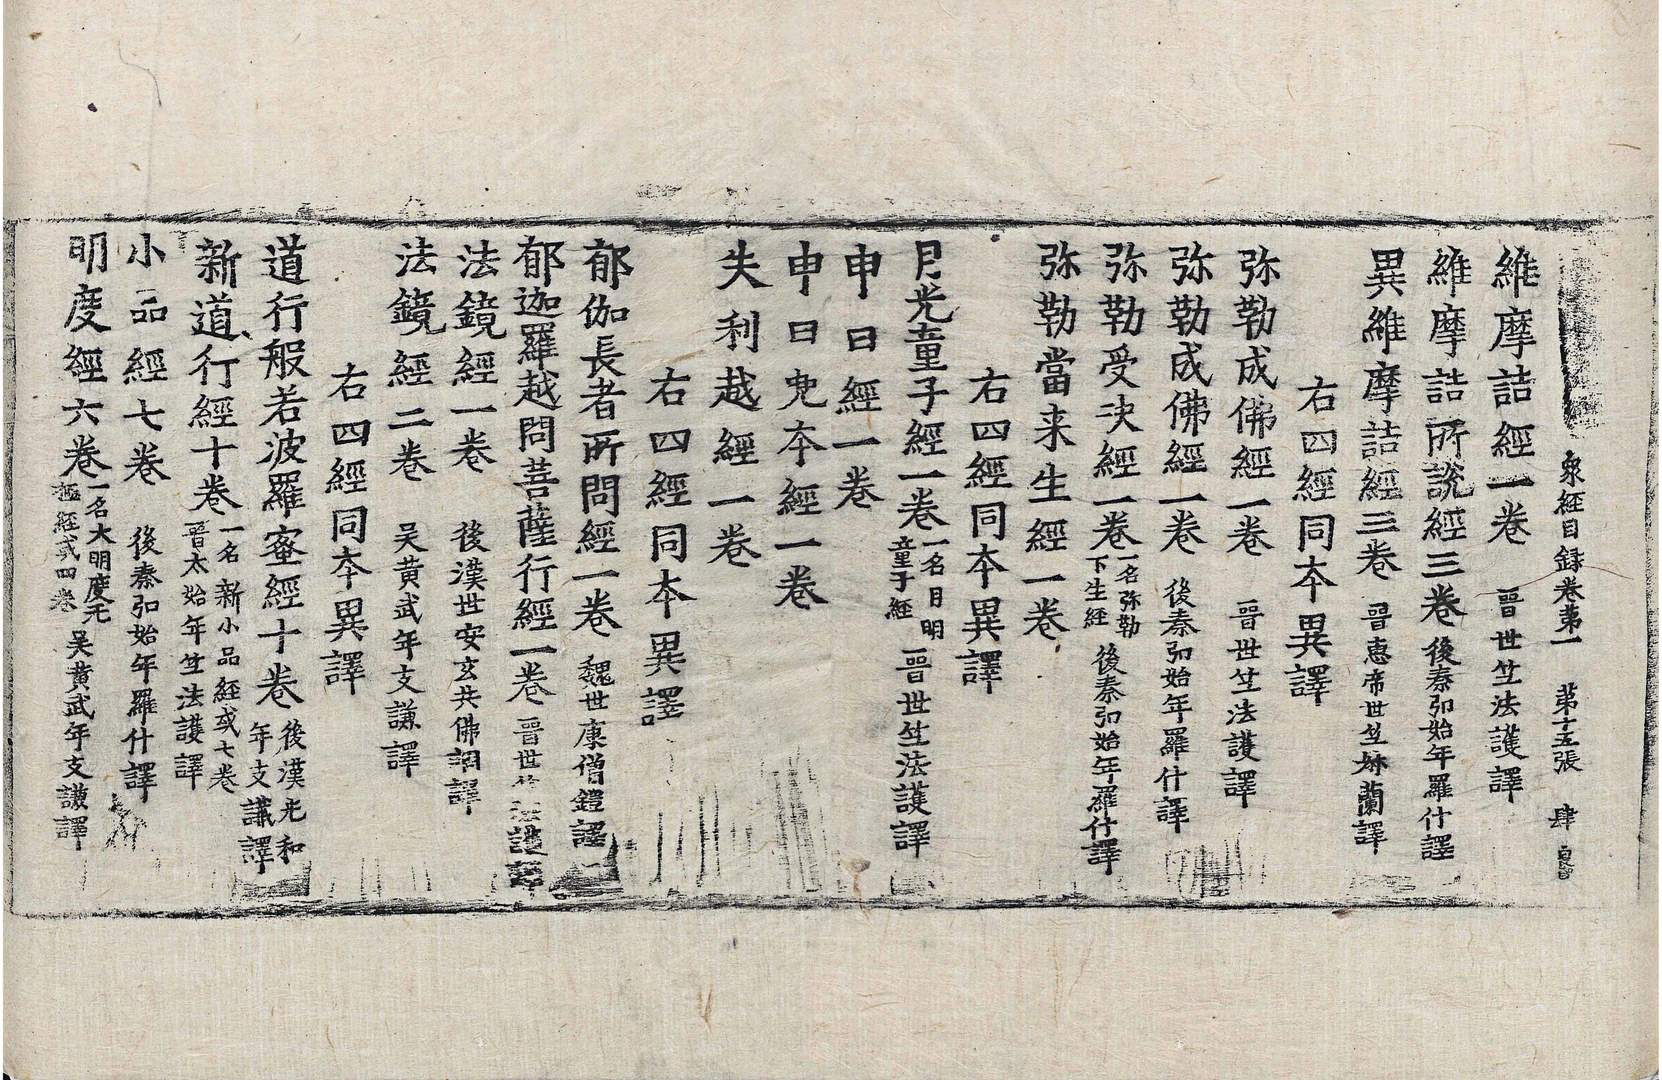 衆經目録卷第一 第十五張 肆
維摩詰經一卷 晉世竺法護譯
維摩詰所說經三卷 後秦弘始年羅什譯
異維摩詰經三卷 晉惠帝世竺叔蘭譯
右四經同本異譯
弥勒成佛經一卷 晉世竺法護譯
弥勒成佛經一卷 後秦弘始年羅什譯
弥勒受决經一卷 一名弥勒下生經 後秦弘始年羅什譯
弥勒當来生經一卷
右四經同本異譯
月光童子經一卷 一名月明童子經 晉世竺法護譯
申日經一卷
申日兜本經一卷
失利越經一卷
右四經同本異譯
郁伽長者所問經一卷 魏世康僧鎧譯
郁迦羅越問菩薩行經一卷 晉世竺法護譯
法鏡經一卷 後漢世安玄共佛調譯
法鏡經二卷 吴黄武年支謙譯
右四經同本異譯
道行般若波羅蜜經十卷 後漢光和年支讖譯
新道行經十卷 一名新小品經或七卷 晉太始年竺法護譯
小品經七卷 後秦弘始年羅什譯
明度經六卷 一名大明度无極經或四卷 吴黄武年支謙譯